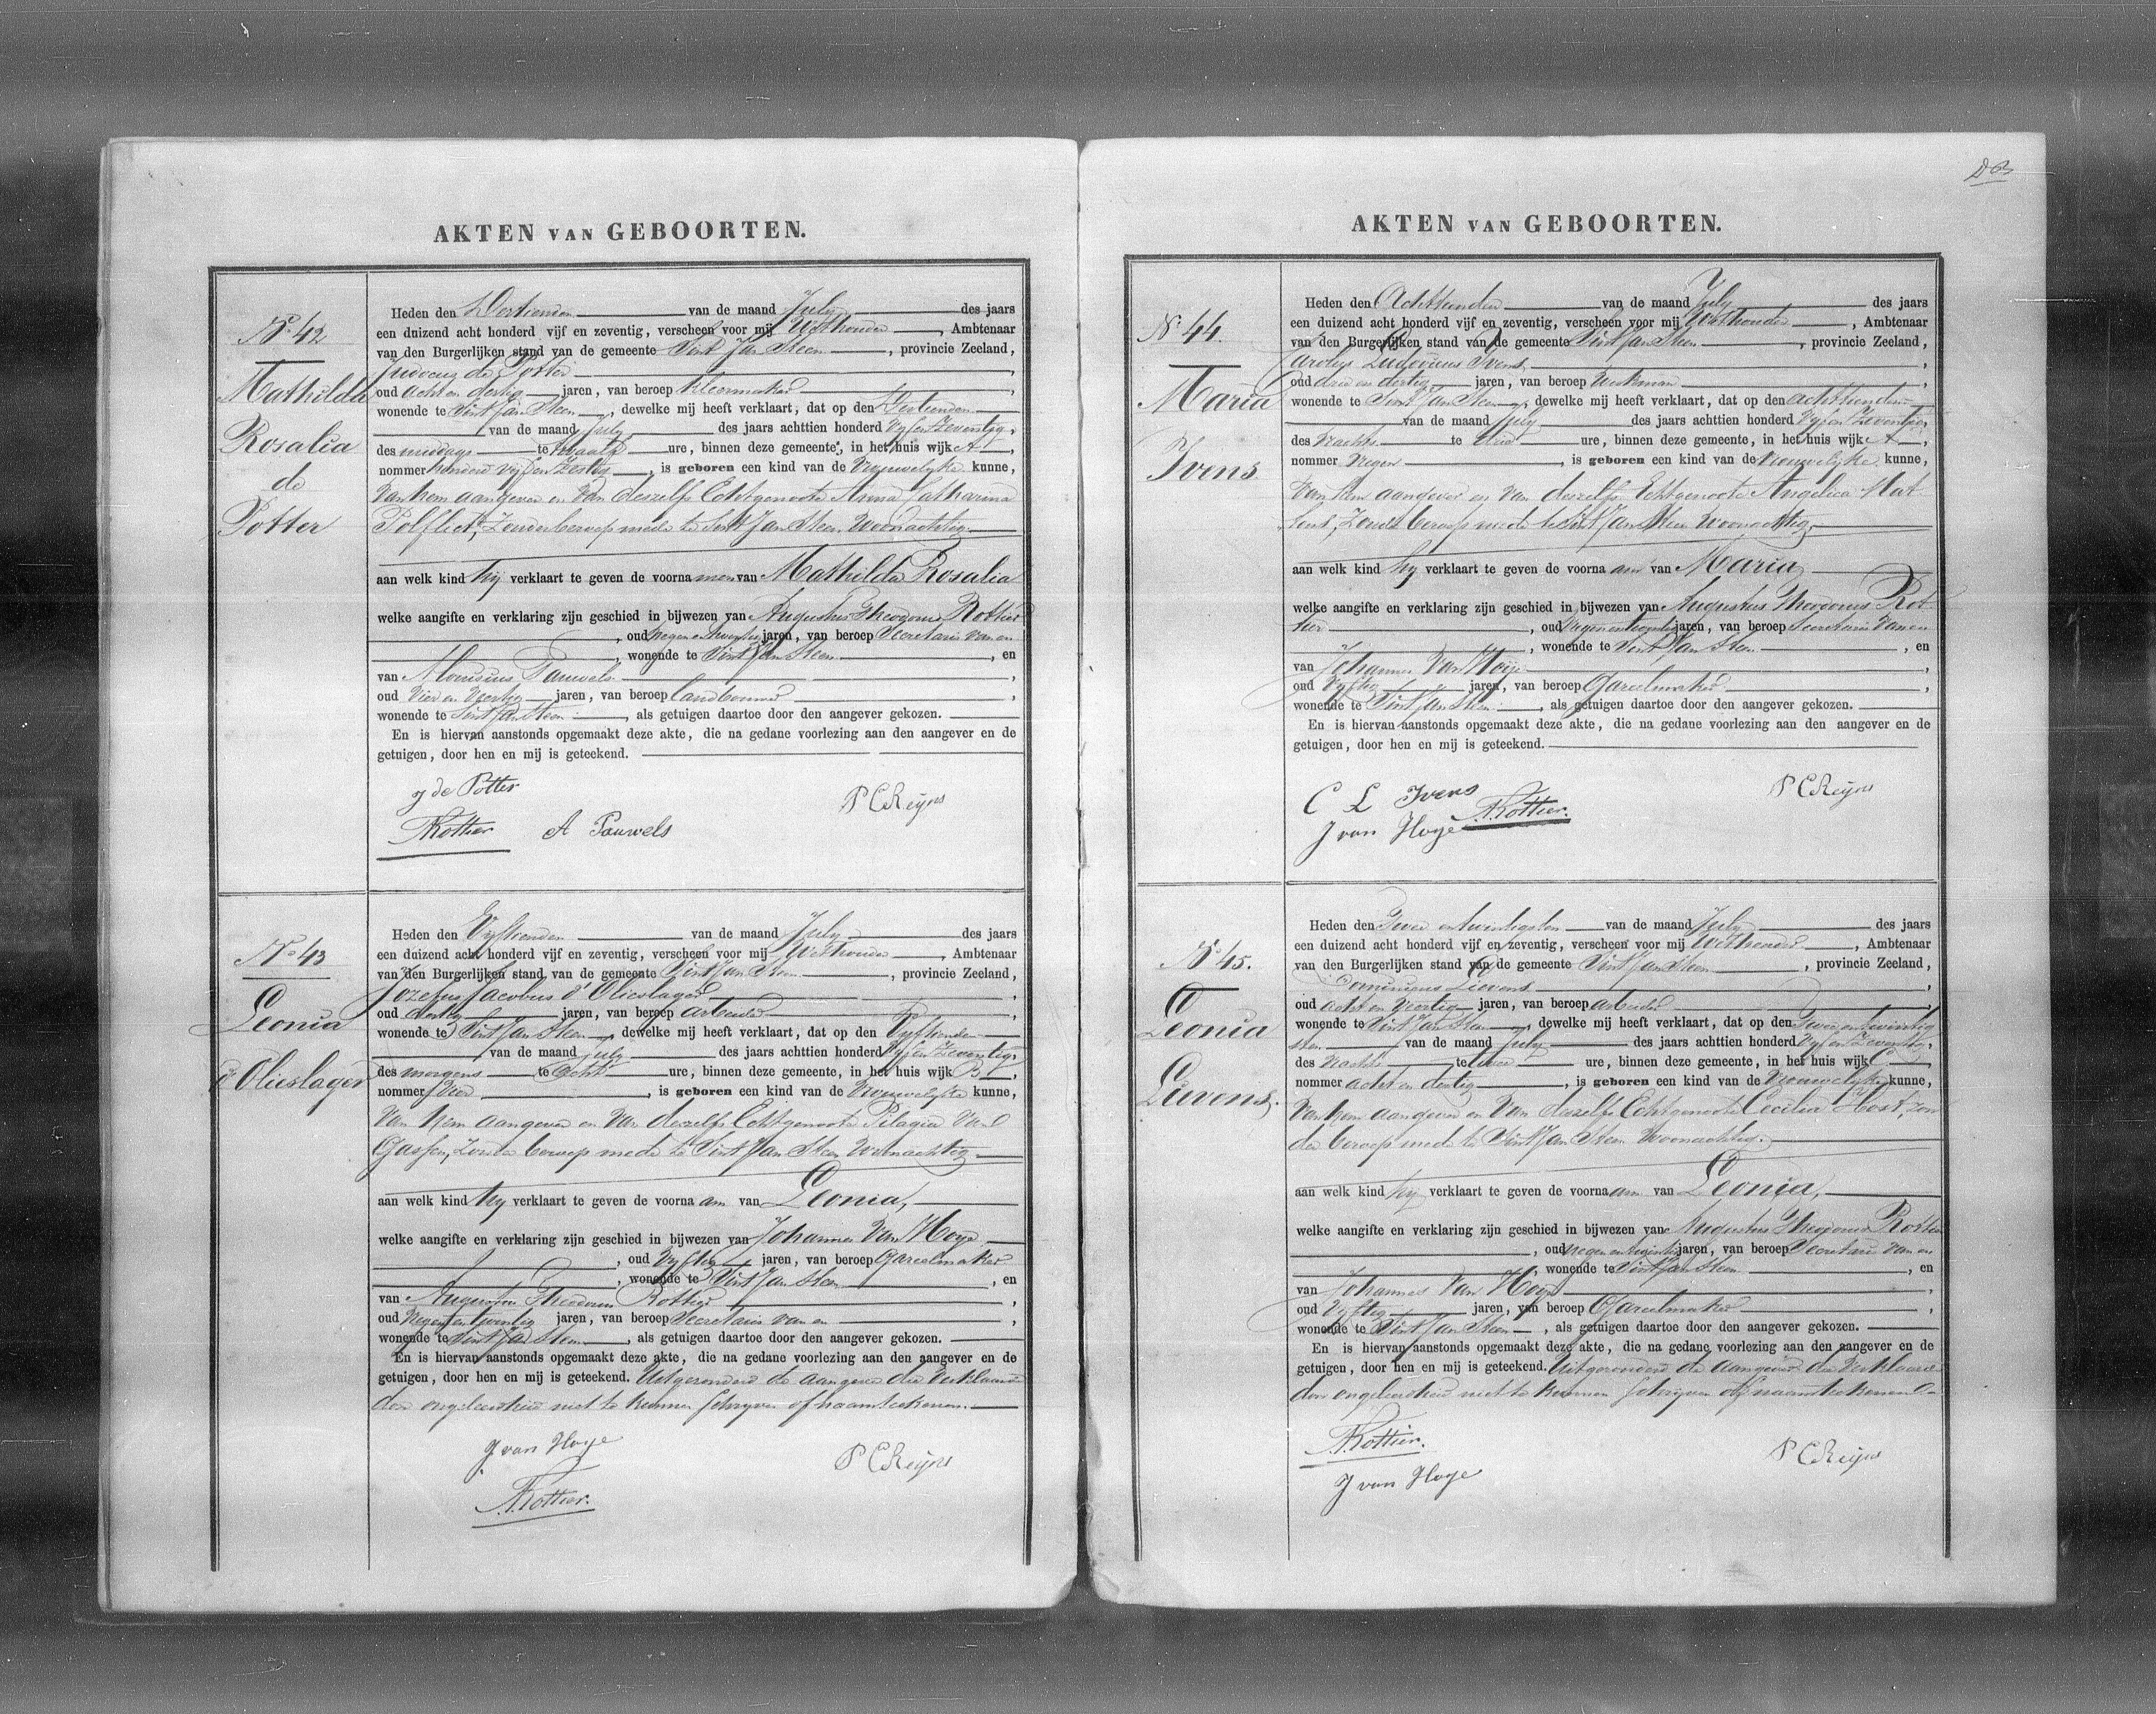 AKTEN VAN GEBOORTEN.
No. 42
Mathilda
Rosalia
de
Potter
Heden den Dertienden van de maand July des jaars
een duizend acht honderd vijf en zeventig, verscheen voor mij Wethouder, Ambtenaar
van den Burgerlijken stand van de gemeente Sint Jan Steen, provincie Zeeland,
de Potter
oud acht en dertig jaren, van beroep kleermaker
wonende te Sint Jan Steen, dewelke mij heeft verklaart, dat op den Dertienden
van de maand July des jaars achttien honderd Vyf en Zeventig,
des middags te twaalf ure, binnen deze gemeente, in het huis wijk A,
nommer honderd vijf en zestig, is geboren een kind van de Vrouwelyke kunne,
Van hem aangever en Van deszelfs Echtgenoote Anna Catharina
Polfliet, Zonder beroep mede te Sint Jan Steen Woonachtig
aan welk kind hij verklaart te geven de voornamen van Mathilda Rosalia
welke aangifte en verklaring zijn geschied in bijwezen van Augustus Theodorus Rottier
, oud negen en twintig jaren, van beroep Secretaris van en
, wonende te Sint Jan Steen, en
van Aloïsius Pauwels,
oud Vier en Veertig jaren, van beroep landbouwer,
wonende te Sint Jan Steen, als getuigen daartoe door den aangever gekozen.
En is hiervan aanstonds opgemaakt deze akte, die na gedane voorlezing aan den aangever en de
getuigen, door hen en mij is geteekend.
J de Potter
P C Reijns
ARottier. A Pauwels
No. 43
Leonia
d'Olieslager
Heden den Vyftienden van de maand July des jaars
een duizend acht honderd vijf en zeventig, verscheen voor mij Wethouder, Ambtenaar
van den Burgerlijken stand van de gemeente Sint Jan Steen, provincie Zeeland,
Jozefus Jacobus d'Olieslager,
oud dertig jaren, van beroep arbeider
wonende te Sint Jan Steen, dewelke mij heeft verklaart, dat op den Vyftienden
van de maand July des jaars achttien honderd Vyf en Zeventig,
des morgens te Acht ure, binnen deze gemeente, in het huis wijk B,
nommer Vier, is geboren een kind van de Vrouwelyke kunne,
Van hem aangever en Van deszelfs Echtgenoote Pelagia Van
Gassen, Zonder beroep mede te Sint Jan Steen Woonachtig
aan welk kind hy verklaart te geven de voornaam van Leonia,
welke aangifte en verklaring zijn geschied in bijwezen van Johannes Van Hoye
, oud Vyftig jaren, van beroep Gareelmaker
, wonende te Sint Jan Steen, en
van Augustus Theodorus Rottier,
oud Negen en twintig jaren, van beroep Secretaris van en,
wonende te Sint Jan Steen, als getuigen daartoe door den aangever gekozen.
En is hiervan aanstonds opgemaakt deze akte, die na gedane voorlezing aan den aangever en de
getuigen, door hen en mij is geteekend. Uitgezonderd de aangever die Verklaarde
door ongeleerdheid niet te kunnen schryven of naamteekenen.
J van Hoye
P C Reijns
ARottier.
AKTEN VAN GEBOORTEN.
No. 44.
Maria
Ivens
Heden den Achttienden van de maand July des jaars
een duizend acht honderd vijf en zeventig, verscheen voor mij Wethouder, Ambtenaar
van den Burgerlijken stand van de gemeente Sint Jan Steen, provincie Zeeland,
Carolus Ludovicus Ivens,
oud drie en dertig jaren, van beroep Werkman,
wonende te Sint Jan Steen, dewelke mij heeft verklaart, dat op den achttienden
van de maand July des jaars achttien honderd Vyf en Zeventig,
des Nachts te ure, binnen deze gemeente, in het huis wijk A,
nommer Negen, is geboren een kind van de Vrouwelyke kunne,
Van hem aangever en Van deszelfs Echtgenoote Angelica Mat
tens, Zonder beroep mede te Sint Jan Steen Woonachtig,
aan welk kind hy verklaart te geven de voornaam van Maria
welke aangifte en verklaring zijn geschied in bijwezen van Augustus Theodorus Rot
tier, oud Negen en twintig jaren, van beroep Secretaris van en
, wonende te Sint Jan Steen, en
van Johannes Van Hoye,
oud Vyftig jaren, van beroep Gareelmaker,
wonende te Sint Jan Steen, als getuigen daartoe door den aangever gekozen.
En is hiervan aanstonds opgemaakt deze akte, die na gedane voorlezing aan den aangever en de
getuigen, door hen en mij is geteekend.
C L Ivens
P C Reijns
J van Hoye ARottier.
No. 45.
Leonia
Lievens.
Heden den Twee en twintigsten van de maand July des jaars
een duizend acht honderd vijf en zeventig, verscheen voor mij Wethouder, Ambtenaar
van den Burgerlijken stand van de gemeente Sint Jan Steen, provincie Zeeland,
Dominicus Lievens,
oud acht en Veertig jaren, van beroep arbeider
wonende te Sint Jan Steen, dewelke mij heeft verklaart, dat op den Twee en twintig
sten van de maand July des jaars achttien honderd Vyf en Zeventig,
des Nachts te twee ure, binnen deze gemeente, in het huis wijk C,
nommer acht en dertig, is geboren een kind van de Vrouwelyke kunne,
Van hem aangever en Van deszelfs Echtgenoote Cecilia Host, zon
der beroep mede te Sint Jan Steen Woonachtig.
aan welk kind hy verklaart te geven de voornaam van Leonia,
welke aangifte en verklaring zijn geschied in bijwezen van Augustus Theodorus Rottier
, oud negen en twintig jaren, van beroep Secretaris van en
, wonende te Sint Jan Steen, en
van Johannes Van Hoye,
oud Vyftig jaren, van beroep Gareelmaker,
wonende te Sint Jan Steen, als getuigen daartoe door den aangever gekozen.
En is hiervan aanstonds opgemaakt deze akte, die na gedane voorlezing aan den aangever en de
getuigen, door hen en mij is geteekend. Uitgezonderd de aangever die Verklaarde
door ongeleerdheid niet te kunnen schryven of naamteekenen
ARottier.
P C Reijns
J van Hoye